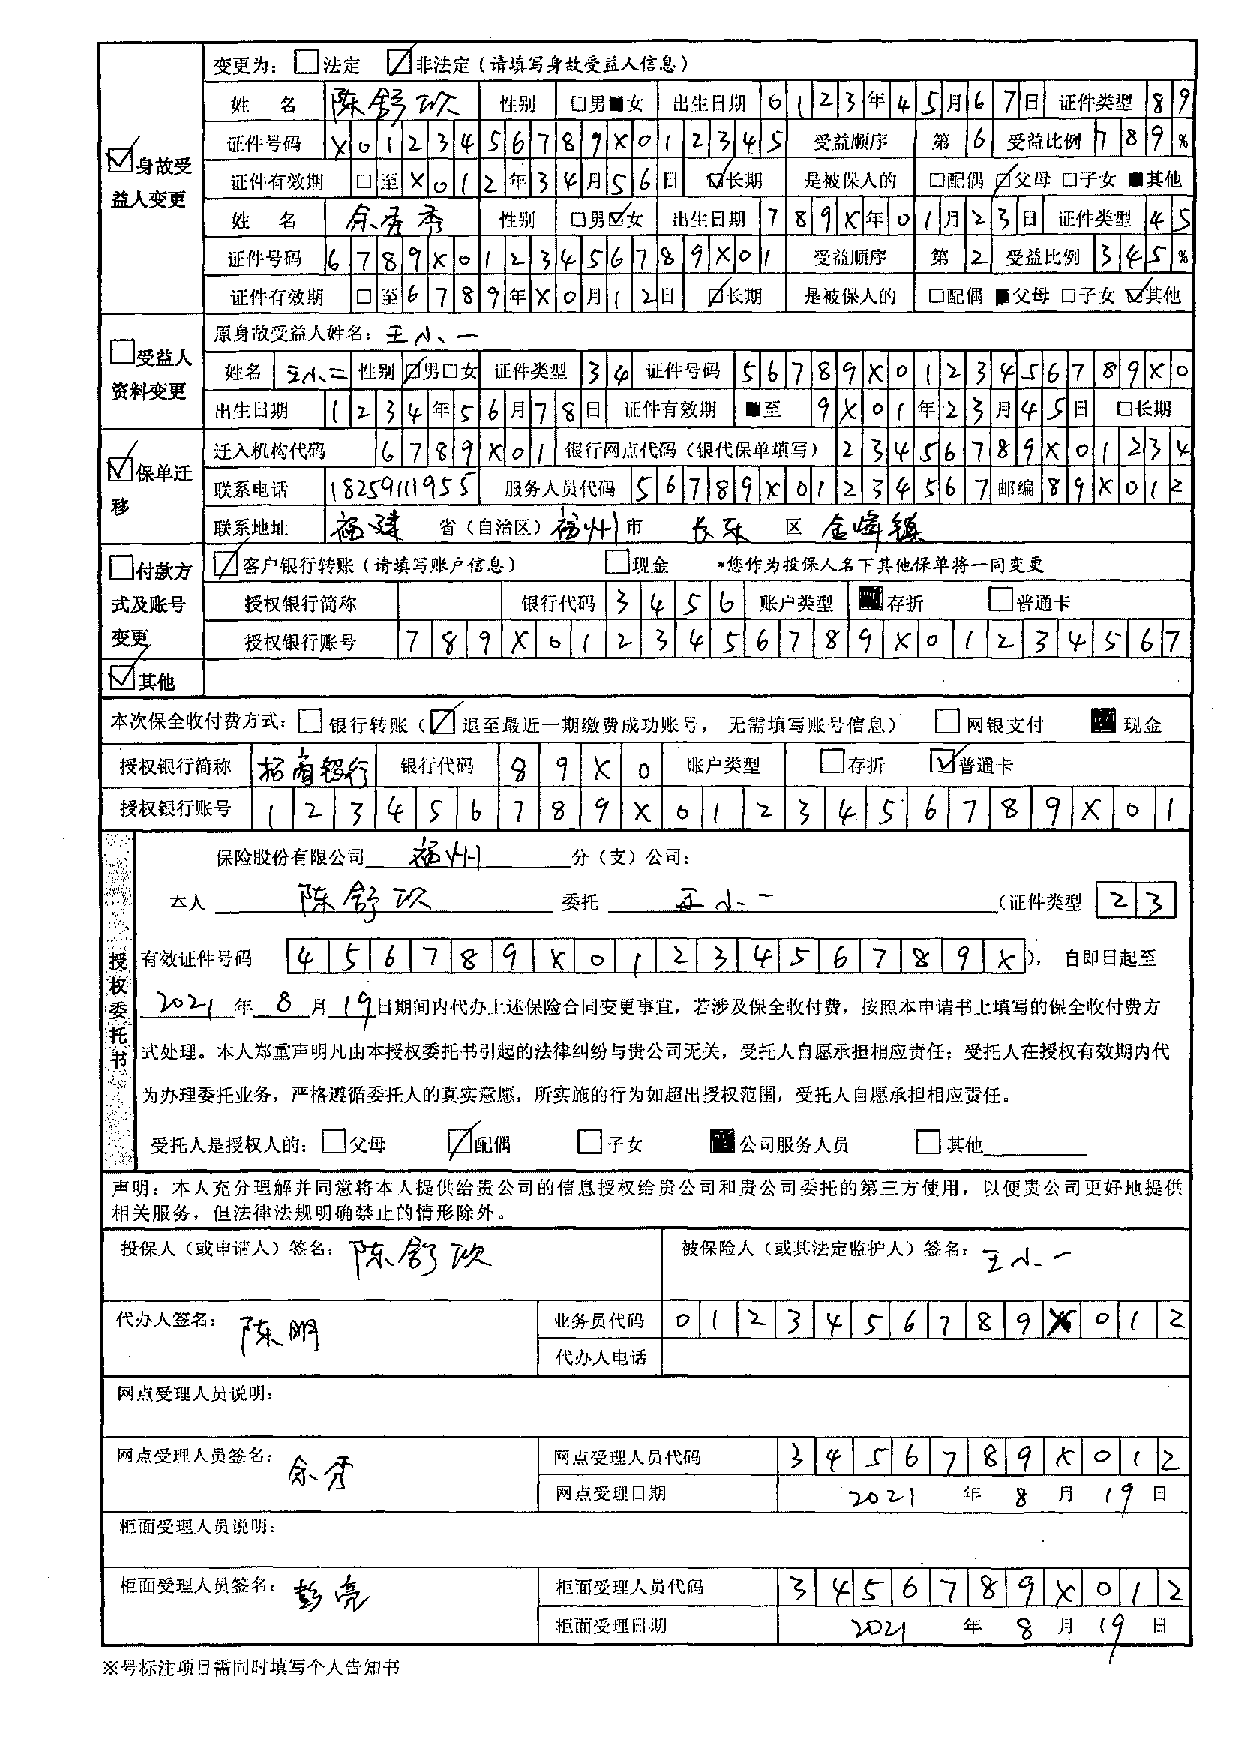 变更为：□法定 ☑非法定（请填写身故受益人信息）
☑身故受益人变更
姓 名 陈舒玖 性别 □男■女 出生日期 0123年45月67日 证件类型 89
证件号码 X0123456789X012345 受益顺序 第6 受益比例 789%
证件有效期 □至X012年34月56日 ☑长期 是被保人的 □配偶☑父母□子女■其他
姓 名 余秀秀 性别 □男☑女 出生日期 789X年01月23日 证件类型 45
证件号码 6789X0123456789X01 受益顺序 第2 受益比例 345%
证件有效期 □至6789年X0月12日 ☑长期 是被保人的 □配偶■父母□子女☑其他
□受益人资料变更
原身故受益人姓名：王小一
姓名 王小二 性别 ☑男□女 证件类型 34 证件号码 56789X0123456789X0
出生日期 1234年56月78日 证件有效期 ■至 9X01年23月45日 □长期
☑保单迁移
迁入机构代码 6789X01 银行网点代码（银代保单填写）23456789X01234
联系电话 18259111955 服务人员代码 56789X01234567 邮编 89X012
联系地址 福建 省（自治区）福州 市 长乐 区 金峰镇
□付款方式及账号变更
☑客户银行转账（请填写账户信息） □现金 *您作为投保人名下其他保单将一同变更
授权银行简称 银行代码 3456 账户类型 ■存折 □普通卡
授权银行账号 789X0123456789X01234567
☑其他
本次保全收付费方式：□银行转账（☑退至最近一期缴费成功账号，无需填写账号信息） □网银支付 ■现金
授权银行简称 招商银行 银行代码 89X0 账户类型 □存折 ☑普通卡
授权银行账号 123456789X0123456789X01
授权委托书
保险股份有限公司 福州 分（支）公司：
本人 陈舒玖 委托 王小一 （证件类型 23
有效证件号码 456789X0123456789X），自即日起至
2021年8月19日期间内代办上述保险合同变更事宜，若涉及保全收付费，按照本申请书上填写的保全收付费方
式处理。本人郑重声明凡由本授权委托书引起的法律纠纷与贵公司无关，受托人自愿承担相应责任；受托人在授权有效期内代
为办理委托业务，严格遵循委托人的真实意愿，所实施的行为如超出授权范围，受托人自愿承担相应责任。
受托人是授权人的：□父母 ☑配偶 □子女 ■公司服务人员 □其他
声明：本人充分理解并同意将本人提供给贵公司的信息授权给贵公司和贵公司委托的第三方使用，以便贵公司更好地提供
相关服务，但法律法规明确禁止的情形除外。
投保人（或申请人）签名：陈舒玖 被保险人（或其法定监护人）签名：王小一
代办人签名：陈明 业务员代码 0123456789X012
代办人电话
网点受理人员说明：
网点受理人员签名：余秀 网点受理人员代码 3456789X012
网点受理日期 2021 年 8 月 19 日
柜面受理人员说明：
柜面受理人员签名：彭亮 柜面受理人员代码 3456789X012
柜面受理日期 2021 年 8 月 19 日
※号标注项目需同时填写个人告知书